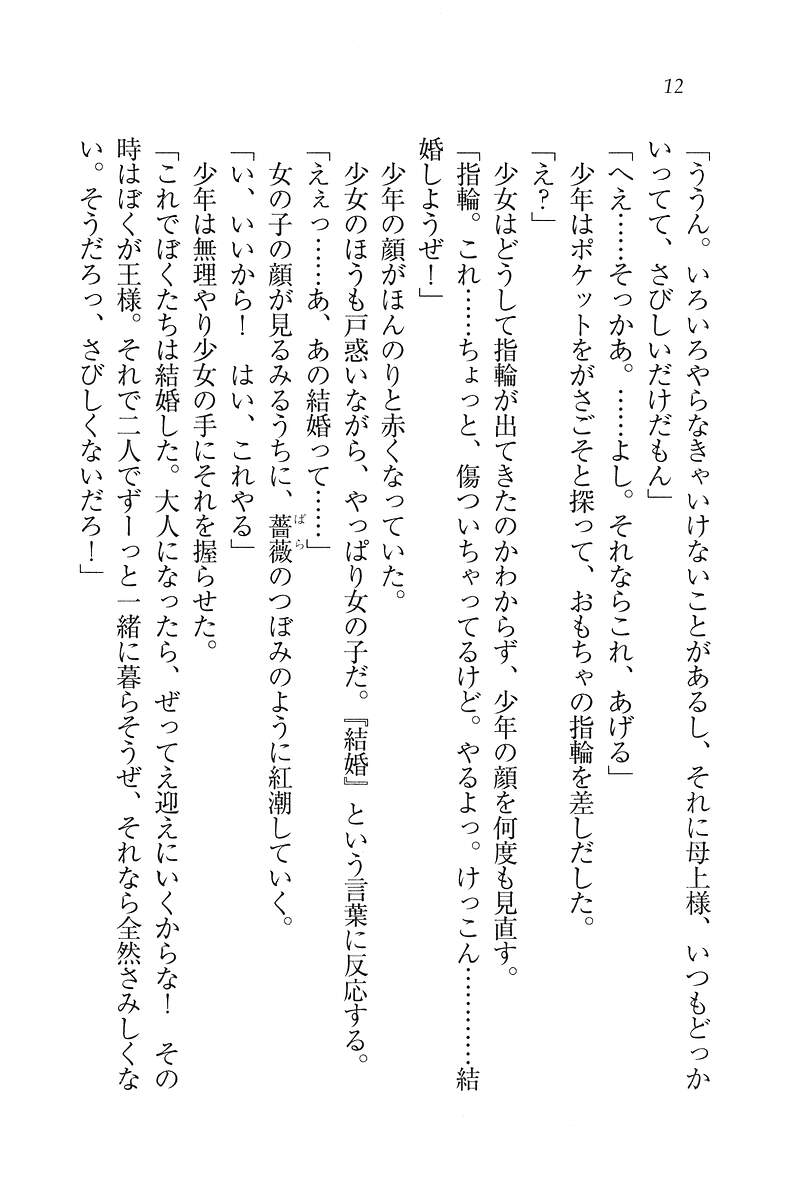 12
「ううん。いろいろやらなきゃいけないことがあるし、それに母上様、いつもどっか
いってて、さびしいだけだもん」
「へえ……そっかあ。……よし。それならこれ、あげる」
少年はポケットをがさごそと探って、おもちゃの指輪を差しだした。
「え？」
少女はどうして指輪が出てきたのかわからず、少年の顔を何度も見直す。
「指輪。これ……ちょっと、傷ついちゃってるけど。やるよっ。けっこん…………結
婚しようぜ！」
少年の顔がほんのりと赤くなっていた。
少女のほうも戸惑いながら、やっぱり女の子だ。『結婚』という言葉に反応する。
「えぇっ……あ、あの結婚って……」
女の子の顔が見るみるうちに、薔薇のつぼみのように紅潮していく。
ばら
「い、いいから！　はい、これやる」
少年は無理やり少女の手にそれを握らせた。
「これでぼくたちは結婚した。大人になったら、ぜってえ迎えにいくからな！　その
時はぼくが王様。それで二人でずーっと一緒に暮らそうぜ、それなら全然さみしくな
い。そうだろっ、さびしくないだろ！」